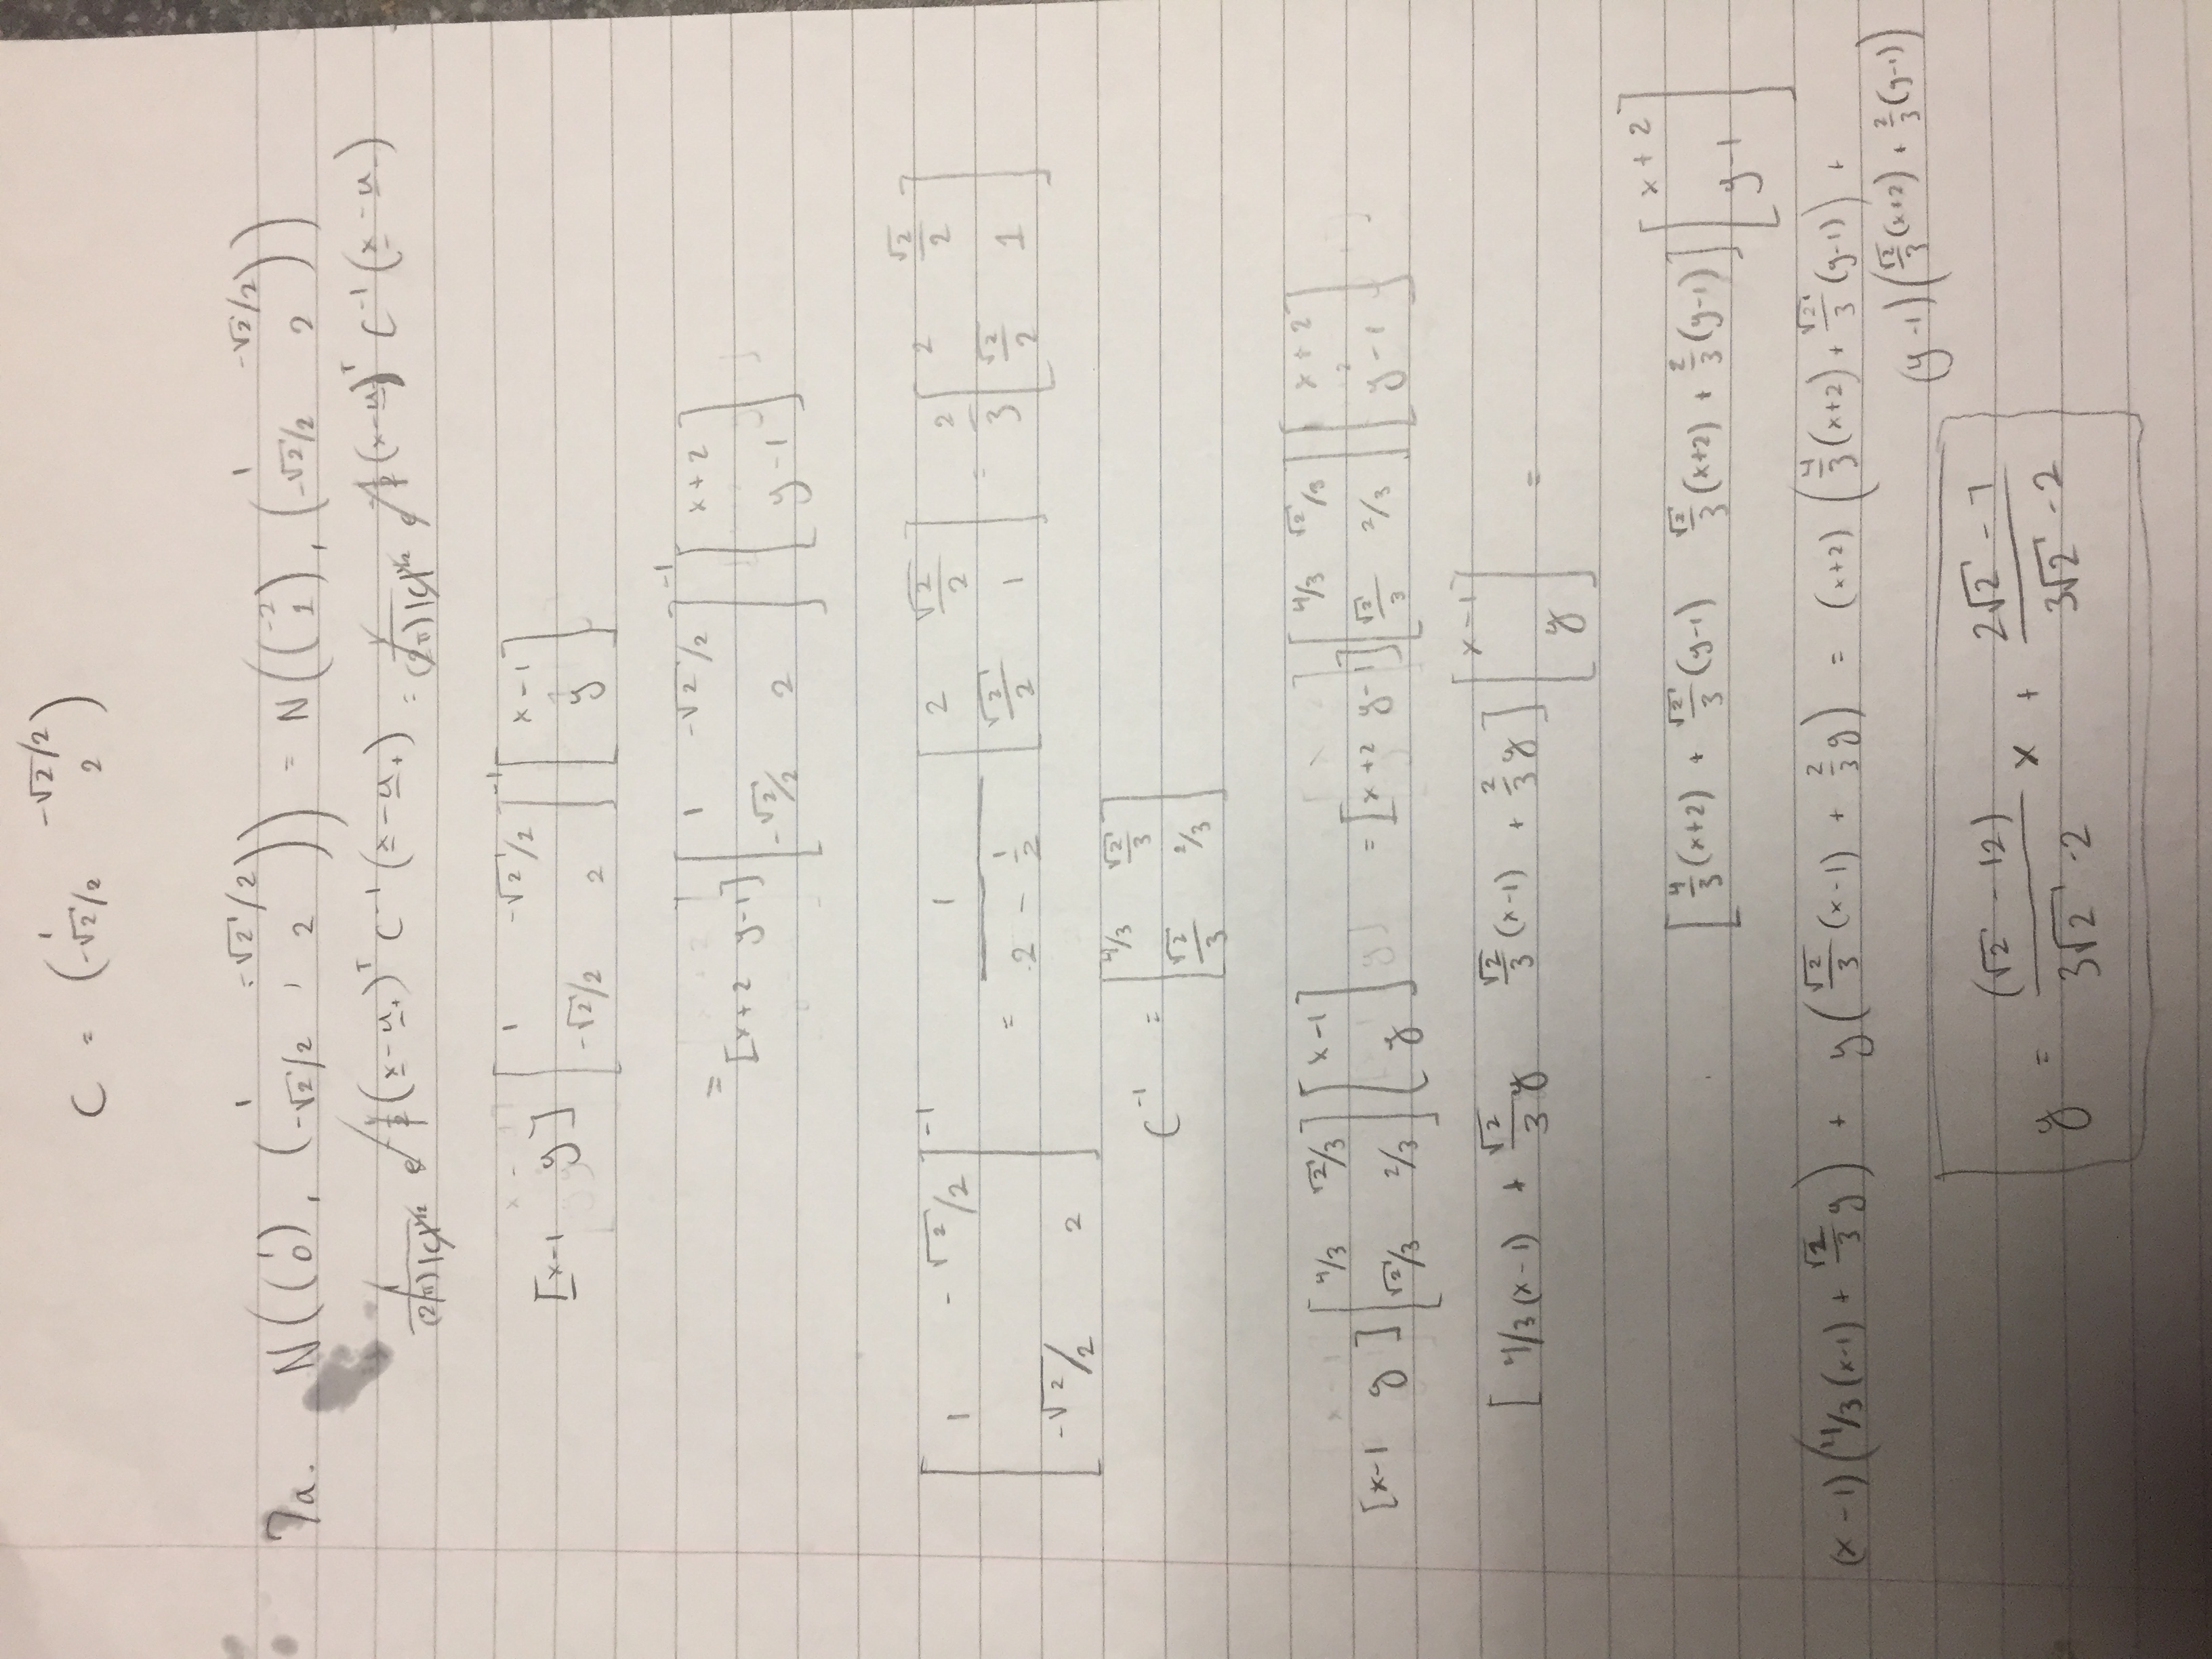 C = ( 1 -√2/2
-√2/2 2 )
7a. N((1 0), (1 -√2/2
-√2/2, 2)) = N((-2 1), (1 -√2/2
-√2/2 2))
1/((2π)|C|^1/2) e^-1/2 (x-u₊)ᵀ C⁻¹ (x-u₊) = 1/((2π)|C|^1/2) e^-1/2 (x-u₋)ᵀ C⁻¹ (x-u₋)
[x-1 y] [1 -√2/2
-√2/2 2]⁻¹ [x-1
y]
= [x+2 y-1] [1 -√2/2
-√2/2 2]⁻¹ [x+2
y-1]
[1 -√2/2
-√2/2 2]⁻¹ = 1/(2 - 1/2) [2 √2/2
√2/2 1] = 2/3 [2 √2/2
√2/2 1]
C⁻¹ = [4/3 √2/3
√2/3 2/3]
[x-1 y] [4/3 √2/3
√2/3 2/3] [x-1
y] = [x+2 y-1] [4/3 √2/3
√2/3 2/3] [x+2
y-1]
[4/3(x-1) + √2/3 y √2/3(x-1) + 2/3 y] [x-1
y] =
[4/3(x+2) + √2/3(y-1) √2/3(x+2) + 2/3(y-1)] [x+2
y-1]
(x-1)(4/3(x-1) + √2/3 y) + y(√2/3(x-1) + 2/3 y) = (x+2)(4/3(x+2) + √2/3(y-1)) +
(y-1)(√2/3(x+2) + 2/3(y-1))
y = (√2 - 12)/(3√2 - 2) x + (2√2 - 7)/(3√2 - 2)